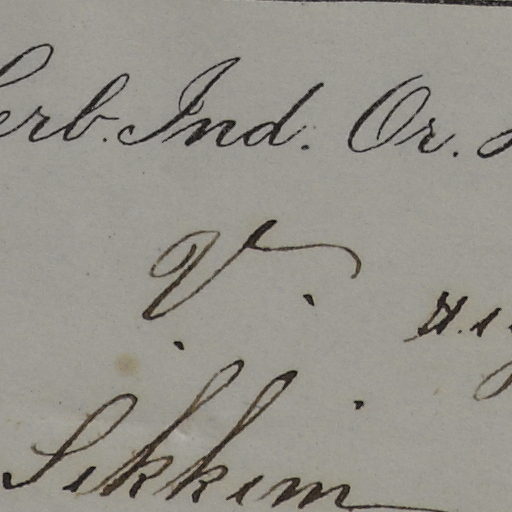 Herb. Ind. Or. H
V.
Sikkim